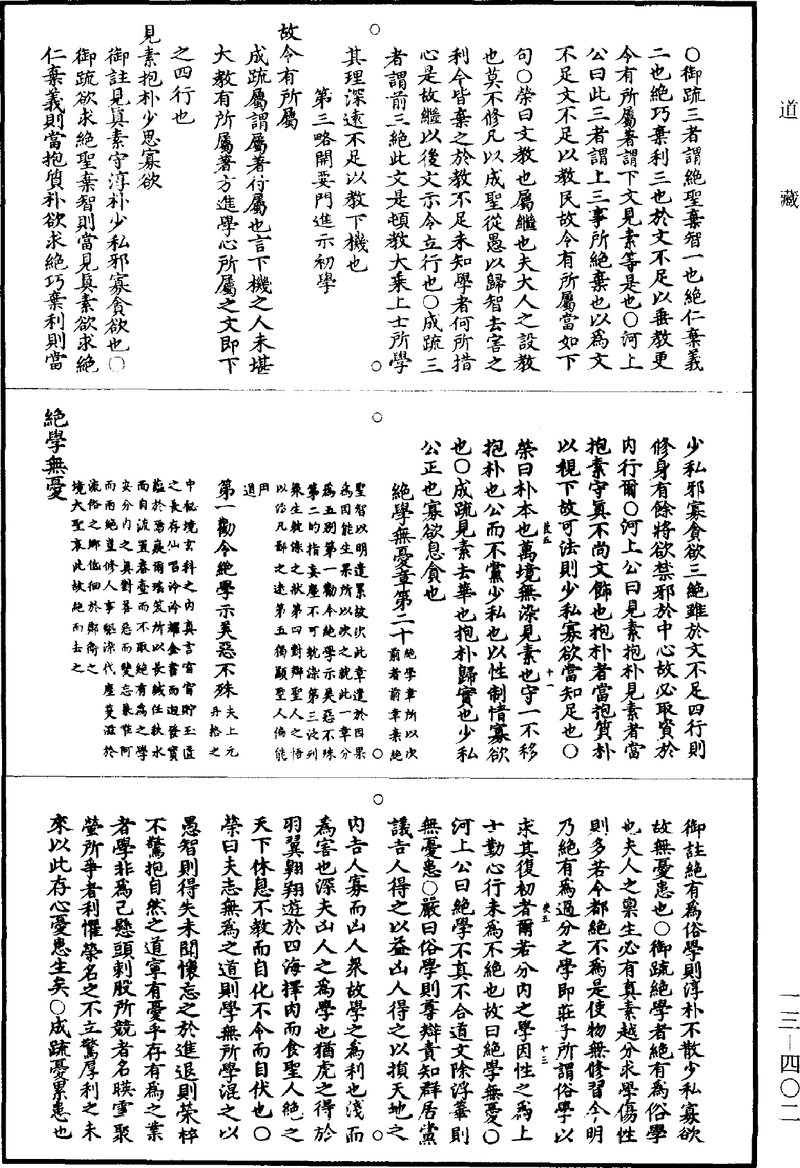 道藏
○御疏三者謂絕聖棄智一也絕仁棄義
二也絕巧棄利三也於文不足以垂教更
令有所屬著謂下文見素等是也○河上
公曰此三者謂上三事所絕棄也以為文
不足文不足以教民故令有所屬當如下
句○榮曰文教也屬繼也夫大人之設教
也莫不修凡以成聖從愚以歸智去害之
利今皆棄之於教不足未知學者何所措
心是故繼以後文示令立行也○成疏三
者謂前三絕此文是頓教大乘上士所學
其理深遠不足以教下機也
第三略開要門進示初學
故令有所屬
成疏屬謂屬著付屬也言下機之人未堪
大教有所屬著方進學心所屬之文即下
之四行也
見素抱朴少思寡欲
御註見真素守淳朴少私邪寡貪欲也○
御疏欲求絕聖棄智則當見真素欲求絕
仁棄義則當抱質朴欲求絕巧棄利則當
少私邪寡貪欲三絕雖於文不足四行則
修身有餘將欲禁邪於中心故必取資於
內行爾○河上公曰見素抱朴見素者當
抱素守真不尚文飾也抱朴者當抱質朴
以視下故可法則少私寡欲當知足也○
榮曰朴本也萬境無染見素也守一不移
抱朴也公而不黨少私也以性制情寡欲
也○成疏見素去華也抱朴歸實也少私
公正也寡欲息貪也
絕學無憂章第二十
絕學章所以次
前者前章棄絕
聖智以明遣累故次此章遣於因果
為因能生果所以次之就此一章分
為五別第一勸令絕學示美惡不殊
第二的指妄塵不可軌染第三汎列
眾生執滯之狀第四對辯聖人之悟
以治凡鄙之迷第五獨顯聖人偏能
用道
第一勸令絕學示美惡不殊
夫上元
丹格之
中秘境玄科之內真言宵宵貯玉匡
之長存仙唱泠泠耀金書而迥發實
蘊於焉庭爾瑤笈所以長緘任秋水
而自流置春臺而不取絕有為之學
安分內之真對善惡而雙忘豪唯阿
而兩絕蓋修人事驅染代塵莫滋於
流俗之鄉佐徊於鄽衢之
境大聖哀此故絕而去之
絕學無憂
御註絕有為俗學則淳朴不散少私寡欲
故無憂患也○御疏絕學者絕有為俗學
也夫人之稟生必有真素越分求學傷性
則多若令都絕不為是使物無修習今明
乃絕有為過分之學即莊子所謂俗學以
求其復初者爾若分內之學因性之為上
士勤心行未為不絕也故曰絕學無憂○
河上公曰絕學不真不合道文除浮華則
無憂患○嚴曰俗學則尊辯貴知群居黨
議吉人得之以益凶人得之以損天地之
內吉人寡而凶人眾故學之為利也淺而
為害也深夫凶人之為學也猶虎之得於
羽翼翺翔遊於四海擇肉而食聖人絕之
天下休息不教而自化不令而自伏也○
榮曰夫志無為之道則學無所學混之以
愚智則得失未聞懷忘之於進退則榮悴
不驚抱自然之道寧有憂乎存有為之業
者學非為己懸頭刺股所競者名映雪聚
螢所爭者利懼榮名之不立驚厚利之未
來以此存心憂患生矣○成疏憂累患也
一三—四〇二